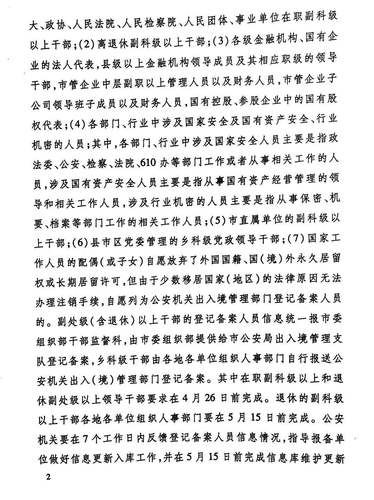 大、政协、人民法院、人民检察院、人民团体、事业单位在职副科级
以上干部；(2)离退休副科级以上干部；(3)各级金融机构、国有企
业的法人代表,县级以上金融机构领导成员及其相应职级的领导
干部,市管企业中层副职以上管理人员以及财务人员,市管企业子
公司领导班子成员以及财务人员,国有控股、参股企业中的国有股
权代表；(4)各部门、行业中涉及国家安全及国有资产安全、行业
机密的人员；其中,各部门、行业中涉及国家安全人员主要是指政
法委、公安、检察、法院、610办等部门工作或者从事相关工作的人
员,涉及国有资产安全人员主要是指从事国有资产经营管理的领
导和相关工作人员,涉及行业机密的人员主要是指从事保密、机
要、档案等部门工作的相关工作人员；(5)市直属单位的副科级以
上干部；(6)县市区党委管理的乡科级党政领导干部；(7)国家工
作人员的配偶(或子女)自愿放弃了外国国籍、国(境)外永久居留
权或长期居留许可,但由于少数移居国家(地区)的法律原因无法
办理注销手续,自愿列为公安机关出入境管理部门登记备案人员
的。副处级(含退休)以上干部的登记备案人员信息统一报市委
组织部干部监督科,由市委组织部提供给市公安局出入境管理支
队登记备案,乡科级干部由各地各单位组织人事部门自行报送公
安机关出入(境)管理部门登记备案。其中在职副科级以上和退
休副处级以上领导干部要求在4月26日前完成。退休的副科级
以上干部各地各单位组织人事部门要在5月15日前完成。公安
机关要在7个工作日内反馈登记备案人员信息情况,指导报备单
位做好信息更新入库工作,并在5月15日前完成信息库维护更新
2